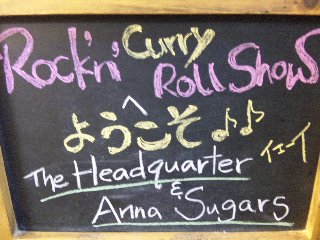 Rock'n' Curry Roll Show
ようこそ♪♪
イエーイ
The Headquarter
&
Anna Sugars